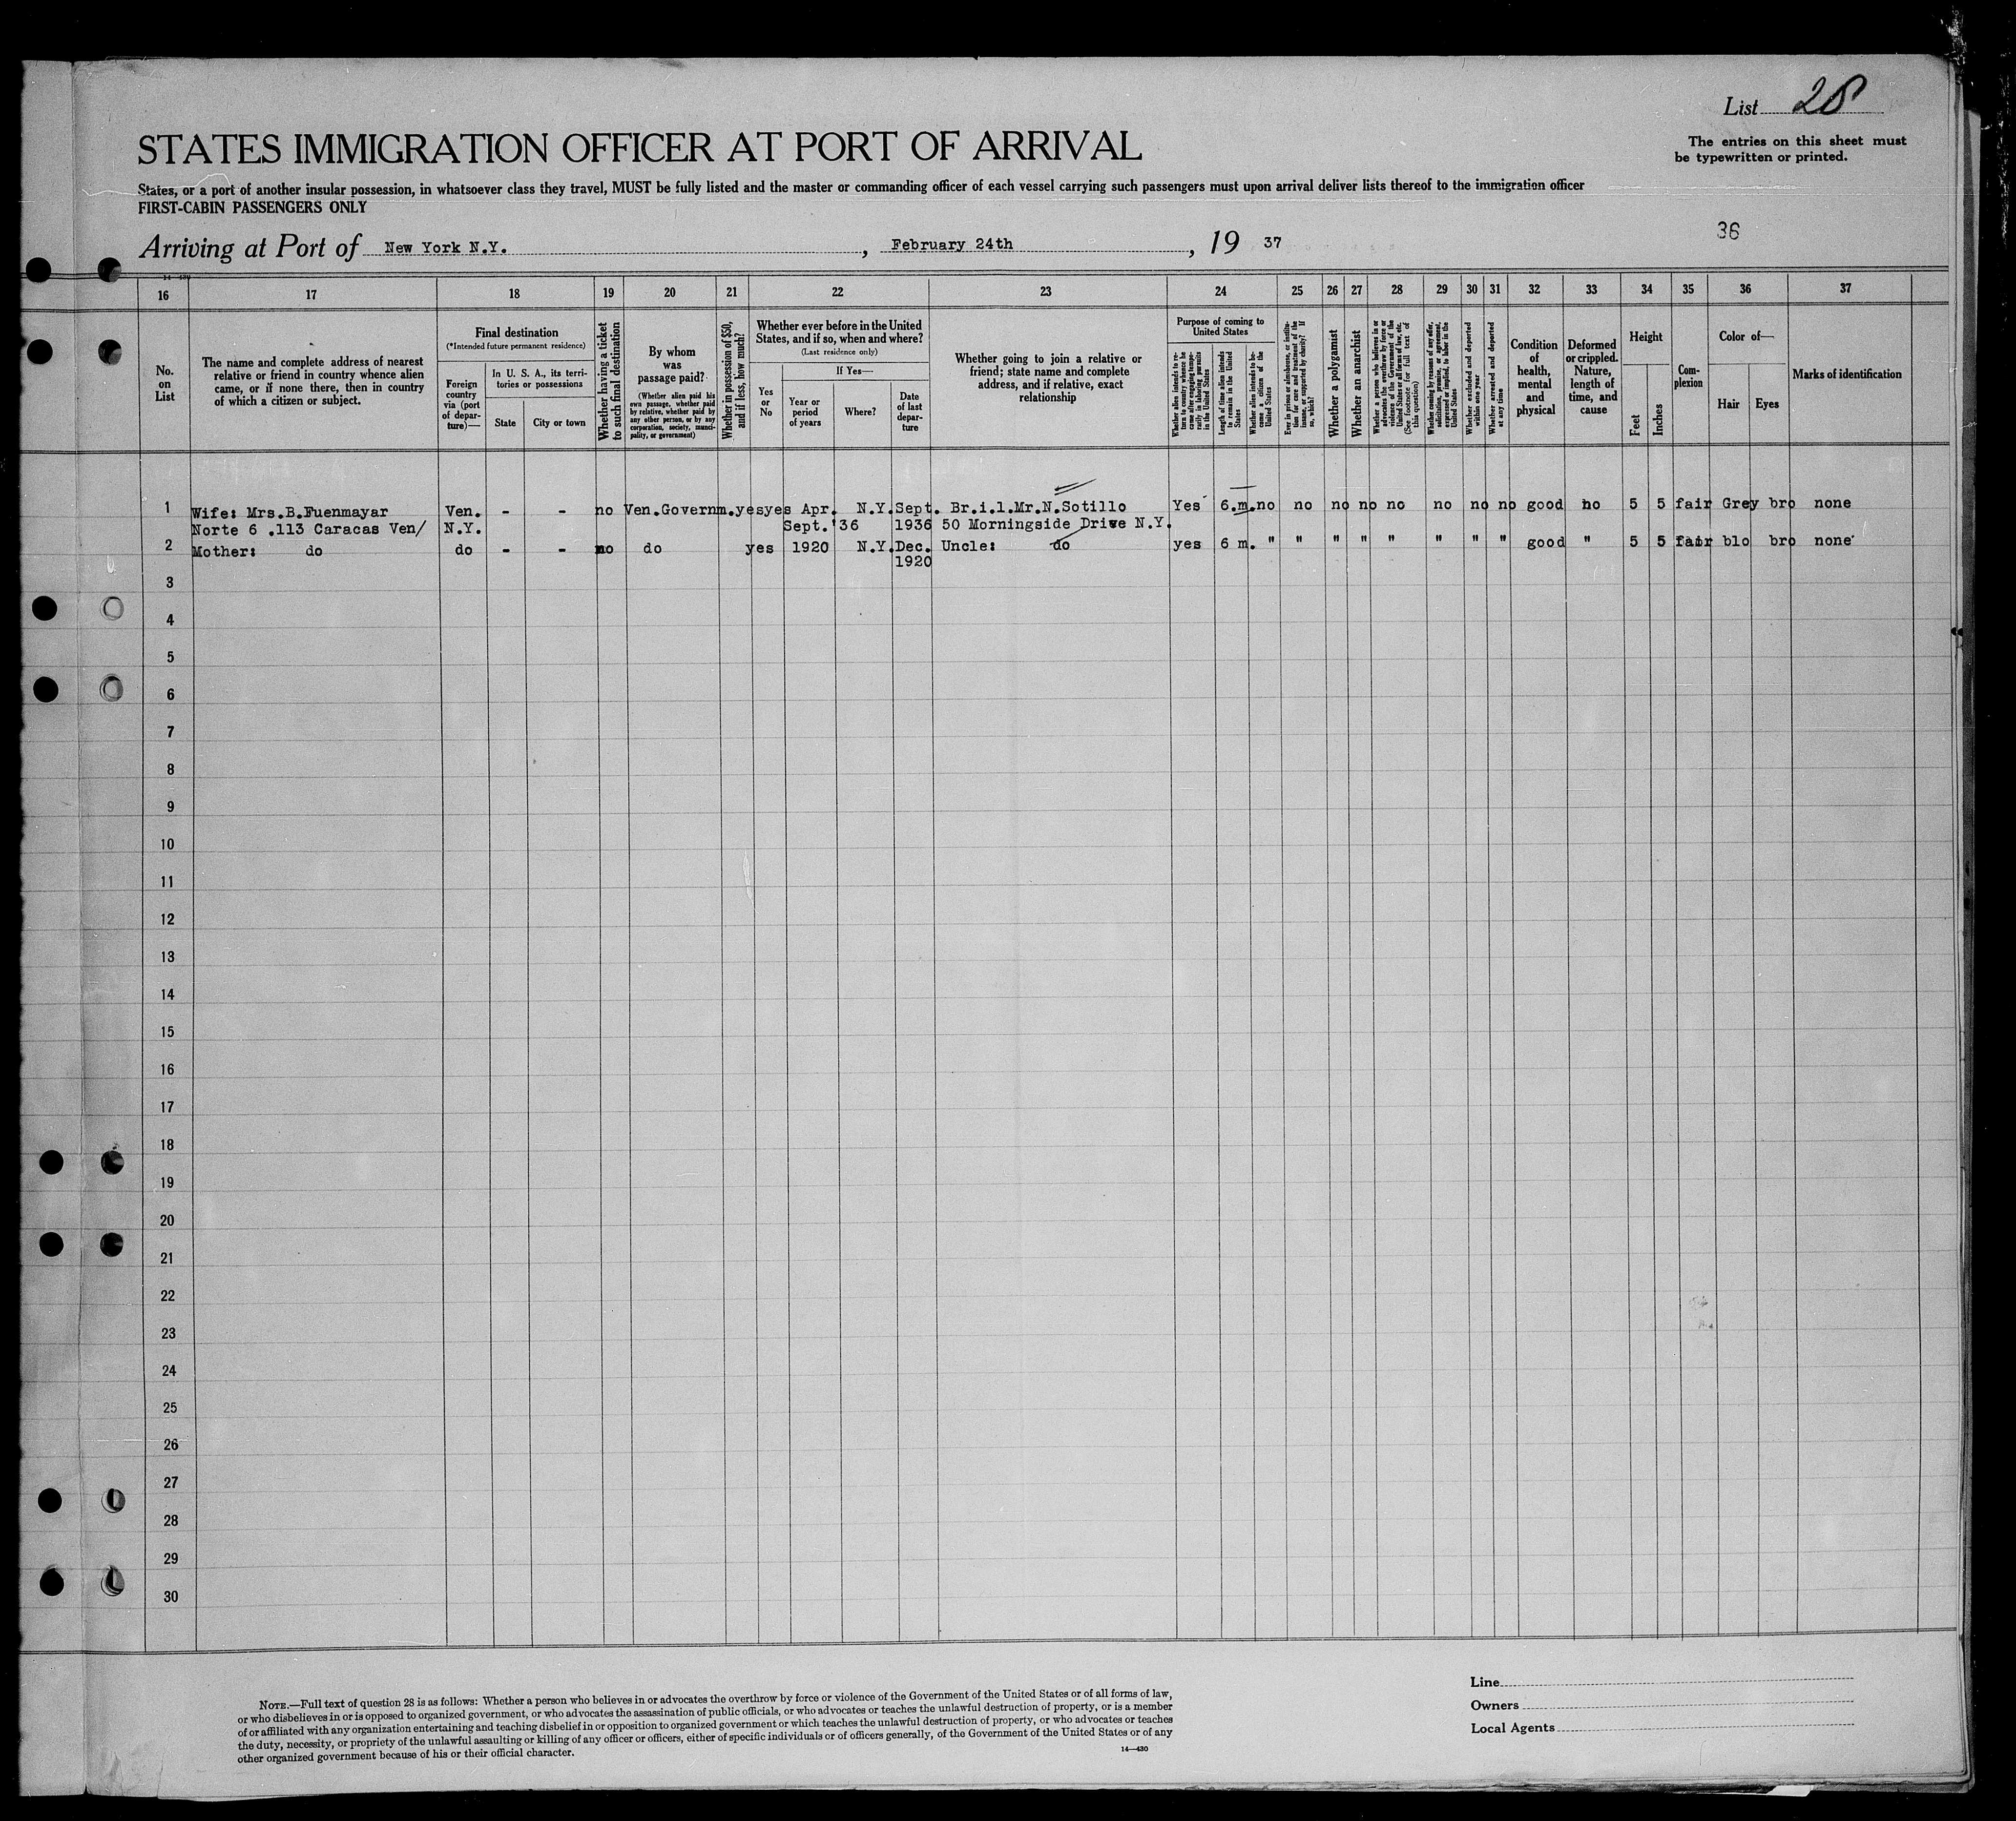 List 28
The entries on this sheet must
be typewritten or printed.
STATES IMMIGRATION OFFICER AT PORT OF ARRIVAL
States, or a port of another insular possession, in whatsoever class they travel, MUST be fully listed and the master or commanding officer of each vessel carrying such passengers must upon arrival deliver lists thereof to the immigration officer
FIRST-CABIN PASSENGERS ONLY
36
Arriving at Port of New York N.Y. , February 24th , 19 37
14—430
16 17 18 19 20 21 22 23 24 25 26 27 28 29 30 31 32 33 34 35 36 37
No.
on
List
The name and complete address of nearest
relative or friend in country whence alien
came, or if none there, then in country
of which a citizen or subject.
Final destination
(*Intended future permanent residence)
Foreign
country
via (port
of depar-
ture)—
In U. S. A., its terri-
tories or possessions
State
City or town
Whether having a ticket
to such final destination
By whom
was
passage paid?
(Whether alien paid his
own passage, whether paid
by relative, whether paid by
any other person, or by any
corporation, society, munici-
pality, or government)
Whether in possession of $50,
and if less, how much?
Whether ever before in the United
States, and if so, when and where?
(Last residence only)
Yes
or
No
If Yes—
Year or
period
of years
Where?
Date
of last
depar-
ture
Whether going to join a relative or
friend; state name and complete
address, and if relative, exact
relationship
Purpose of coming to
United States
Whether alien intends to re-
turn to country whence he
came after engaging tempo-
rarily in laboring pursuits
in the United States
Length of time alien intends
to remain in the United
States
Whether alien intends to be-
come a citizen of the
United States
Ever in prison or almshouse, or institu-
tion for care and treatment of the
insane, or supported by charity? If
so, which?
Whether a polygamist
Whether an anarchist
Whether a person who believes in or
advocates the overthrow by force or
violence of the Government of the
United States or all forms of law, etc.
(See footnote for full text of
this question)
Whether coming by reason of any offer,
solicitation, promise, or agreement,
expressed or implied, to labor in the
United States
Whether excluded and deported
within one year
Whether arrested and deported
at any time
Condition
of
health,
mental
and
physical
Deformed
or crippled.
Nature,
length of
time, and
cause
Height
Feet
Inches
Com-
plexion
Color of—
Hair
Eyes
Marks of identification
1 Wife: Mrs.B.Fuenmayar Ven. - - no Ven.Governm.yesyes Apr. N.Y.Sept. Br.i.l.Mr.N.Sotillo Yes 6.m.no no no no no no no no good no 5 5 fair Grey bro none
Norte 6 .113 Caracas Ven/ N.Y. Sept.'36 1936 50 Morningside Drive N.Y.
2 Mother: do do - - no do yes 1920 N.Y.Dec. Uncle: do yes 6 m. " " " " " " " " good " 5 5 fair blo bro none
1920
3
4
5
6
7
8
9
10
11
12
13
14
15
16
17
18
19
20
21
22
23
24
25
26
27
28
29
30
NOTE.—Full text of question 28 is as follows: Whether a person who believes in or advocates the overthrow by force or violence of the Government of the United States or of all forms of law,
or who disbelieves in or is opposed to organized government, or who advocates the assassination of public officials, or who advocates or teaches the unlawful destruction of property, or is a member
of or affiliated with any organization entertaining and teaching disbelief in or opposition to organized government or which teaches the unlawful destruction of property, or who advocates or teaches
the duty, necessity, or propriety of the unlawful assaulting or killing of any officer or officers, either of specific individuals or of officers generally, of the Government of the United States or of any
other organized government because of his or their official character.
14—430
Line
Owners
Local Agents